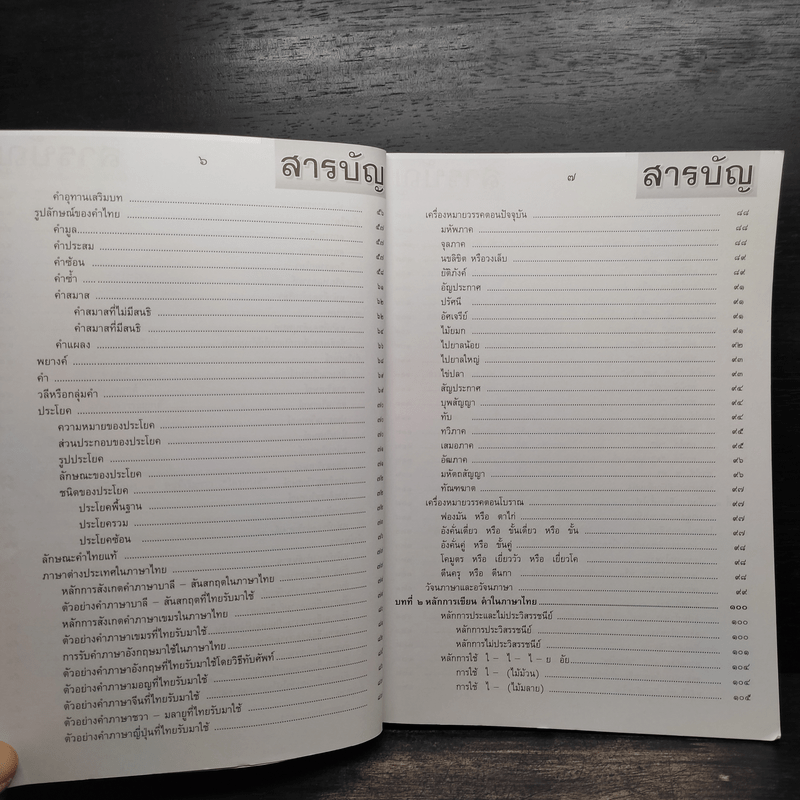 ๖
สารบัญ
คำอุทานเสริมบท ๕๖
รูปลักษณ์ของคำไทย ๕๗
คำมูล ๕๗
คำประสม ๕๗
คำซ้อน ๕๘
คำซ้ำ ๖๑
คำสมาส ๖๒
คำสมาสที่ไม่มีสนธิ ๖๒
คำสมาสที่มีสนธิ ๖๔
คำแผลง ๖๖
พยางค์ ๖๘
คำ
วลีหรือกลุ่มคำ
ประโยค
ความหมายของประโยค
ส่วนประกอบของประโยค
รูปประโยค
ลักษณะของประโยค
ชนิดของประโยค
ประโยคพื้นฐาน
ประโยครวม
ประโยคซ้อน
ลักษณะคำไทยแท้
ภาษาต่างประเทศในภาษาไทย
หลักการสังเกตคำภาษาบาลี – สันสกฤตในภาษาไทย
ตัวอย่างคำภาษาบาลี – สันสกฤตที่ไทยรับมาใช้
หลักการสังเกตคำภาษาเขมรในภาษาไทย
ตัวอย่างคำภาษาเขมรที่ไทยรับมาใช้
การรับคำภาษาอังกฤษมาใช้ในภาษาไทย
ตัวอย่างคำภาษาอังกฤษที่ไทยรับมาใช้โดยวิธีทับศัพท์
ตัวอย่างคำภาษามอญที่ไทยรับมาใช้
ตัวอย่างคำภาษาจีนที่ไทยรับมาใช้
ตัวอย่างคำภาษาชวา – มลายูที่ไทยรับมาใช้
ตัวอย่างคำภาษาญี่ปุ่นที่ไทยรับมาใช้
๗
สารบัญ
เครื่องหมายวรรคตอนปัจจุบัน ๘๘
มหัพภาค ๘๘
จุลภาค ๘๘
นขลิขิต หรือวงเล็บ ๘๙
ยัติภังค์ ๘๙
อัญประกาศ ๙๑
ปรัศนี ๙๑
อัศเจรีย์ ๙๑
ไม้ยมก ๙๑
ไปยาลน้อย ๙๒
ไปยาลใหญ่ ๙๓
ไข่ปลา ๙๓
สัญประกาศ ๙๔
บุพสัญญา ๙๔
ทับ ๙๔
ทวิภาค ๙๕
เสมอภาค ๙๕
อัฒภาค ๙๖
มหัตถสัญญา ๙๖
ทัณฑฆาต ๙๗
เครื่องหมายวรรคตอนโบราณ ๙๗
ฟองมัน หรือ ตาไก่ ๙๗
อังคั่นเดี่ยว หรือ ขั้นเดี่ยว หรือ ขั้น ๙๗
อังคั่นคู่ หรือ ขั้นคู่ ๙๘
โคมูตร หรือ เยี่ยววัว หรือ เยี่ยวโค ๙๘
ตีนครุ หรือ ตีนกา ๙๘
วัจนภาษาและอวัจนภาษา ๙๙
บทที่ ๒ หลักการเขียน คำในภาษาไทย ๑๐๐
หลักการประและไม่ประวิสรรชนีย์ ๑๐๐
หลักการประวิสรรชนีย์ ๑๐๐
หลักการไม่ประวิสรรชนีย์ ๑๐๑
หลักการใช้ ใ – ไ – ไ – ย อัย ๑๐๔
การใช้ ใ – (ไม้ม้วน) ๑๐๔
การใช้ ไ – (ไม้มลาย) ๑๐๕